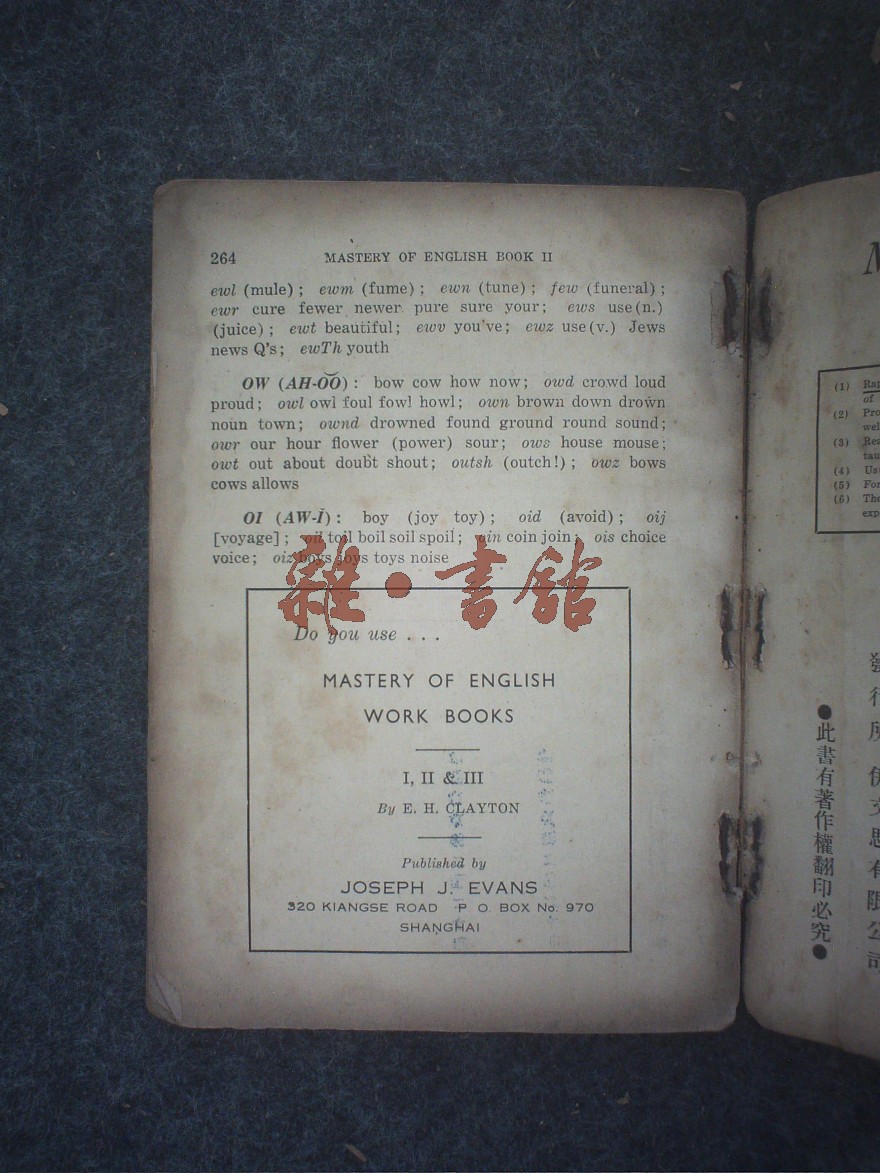 264 MASTERY OF ENGLISH BOOK II
ewl (mule) ; ewm (fume) ; ewn (tune) ; few (funeral) ;
ewr cure fewer newer pure sure your; ews use (n.)
(juice) ; ewt beautiful; ewv you've; ewz use (v.) Jews
news Q's; ewTh youth
OW (AH-O͝O) : bow cow how now; owd crowd loud
proud; owl owl foul fowl howl; own brown down drown
noun town; ownd drowned found ground round sound;
owr our hour flower (power) sour; ows house mouse;
owt out about doubt shout; outsh (outch!) ; owz bows
cows allows
OI (AW-Ĭ) : boy (joy toy) ; oid (avoid) ; oij
[voyage] ; oil toil boil soil spoil; oin coin join; ois choice
voice; oiz boys joys toys noise
雜·書館
Do you use . . .
MASTERY OF ENGLISH
WORK BOOKS
I, II & III
By E. H. CLAYTON
Published by
JOSEPH J. EVANS
320 KIANGSE ROAD P O. BOX No. 970
SHANGHAI
M
(1) Rap
of
(2) Pro
wel
(3) Rea
tau
(4) Us
(5) For
(6) The
exp
發行所 伊文思有限公司
●此書有著作權翻印必究●